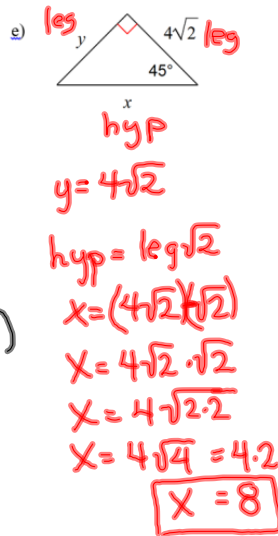 e) leg y 4√2 leg
45°
x
hyp
y = 4√2
hyp = leg√2
x = (4√2)(√2)
x = 4√2 · √2
x = 4√2·2
x = 4√4 = 4·2
x = 8